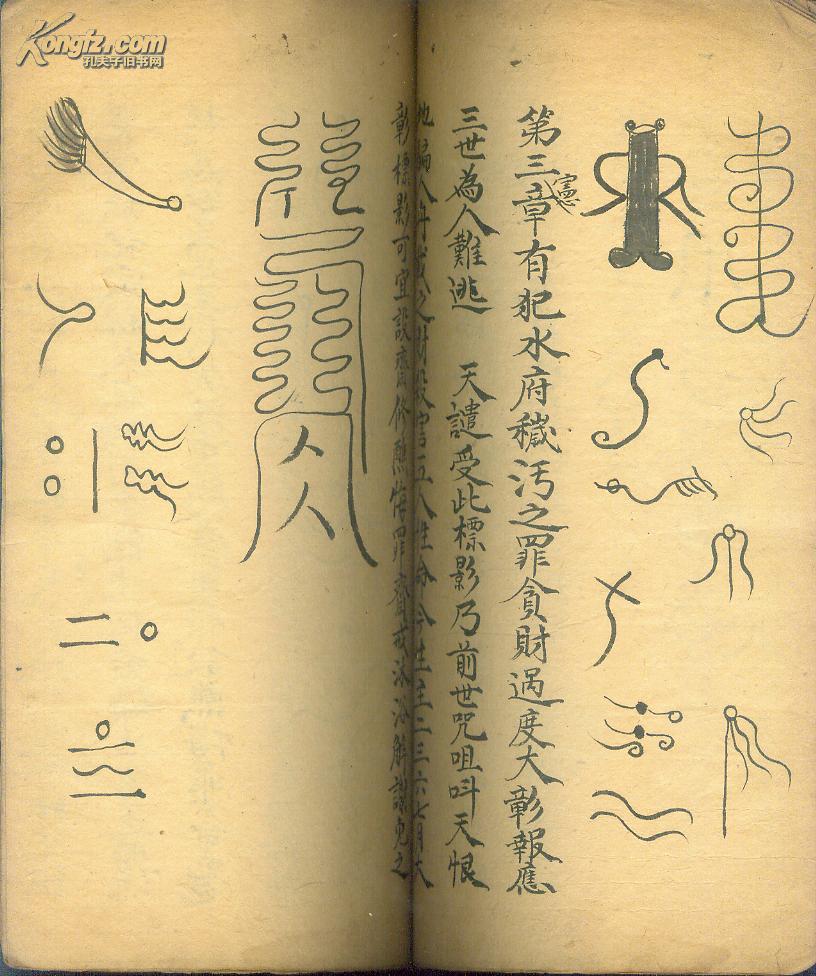 Kongfz.com
孔夫子旧书网
第三章有犯水府穢污之罪貪財過度大彰報應
憲
三世為人難逃 天譴受此標影乃前世咒咀呌天恨
地 人 五人性命今生主二三六七月大
彰標影可宜設齋修醮悔罪齋戒沐浴解謝免之
人
人